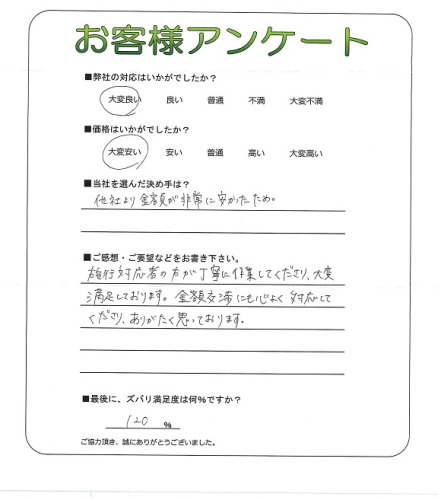 お客様アンケート
■弊社の対応はいかがでしたか？
大変良い 良い 普通 不満 大変不満
■価格はいかがでしたか？
大変安い 安い 普通 高い 大変高い
■当社を選んだ決め手は？
他社より金額が非常に安かったため。
■ご感想・ご要望などをお書き下さい。
施行対応者の方が丁寧に作業してくださり、大変
満足しております。金額交渉にも心よく対応して
くださり、ありがたく思っております。
■最後に、ズバリ満足度は何%ですか？
120 %
ご協力頂き、誠にありがとうございました。